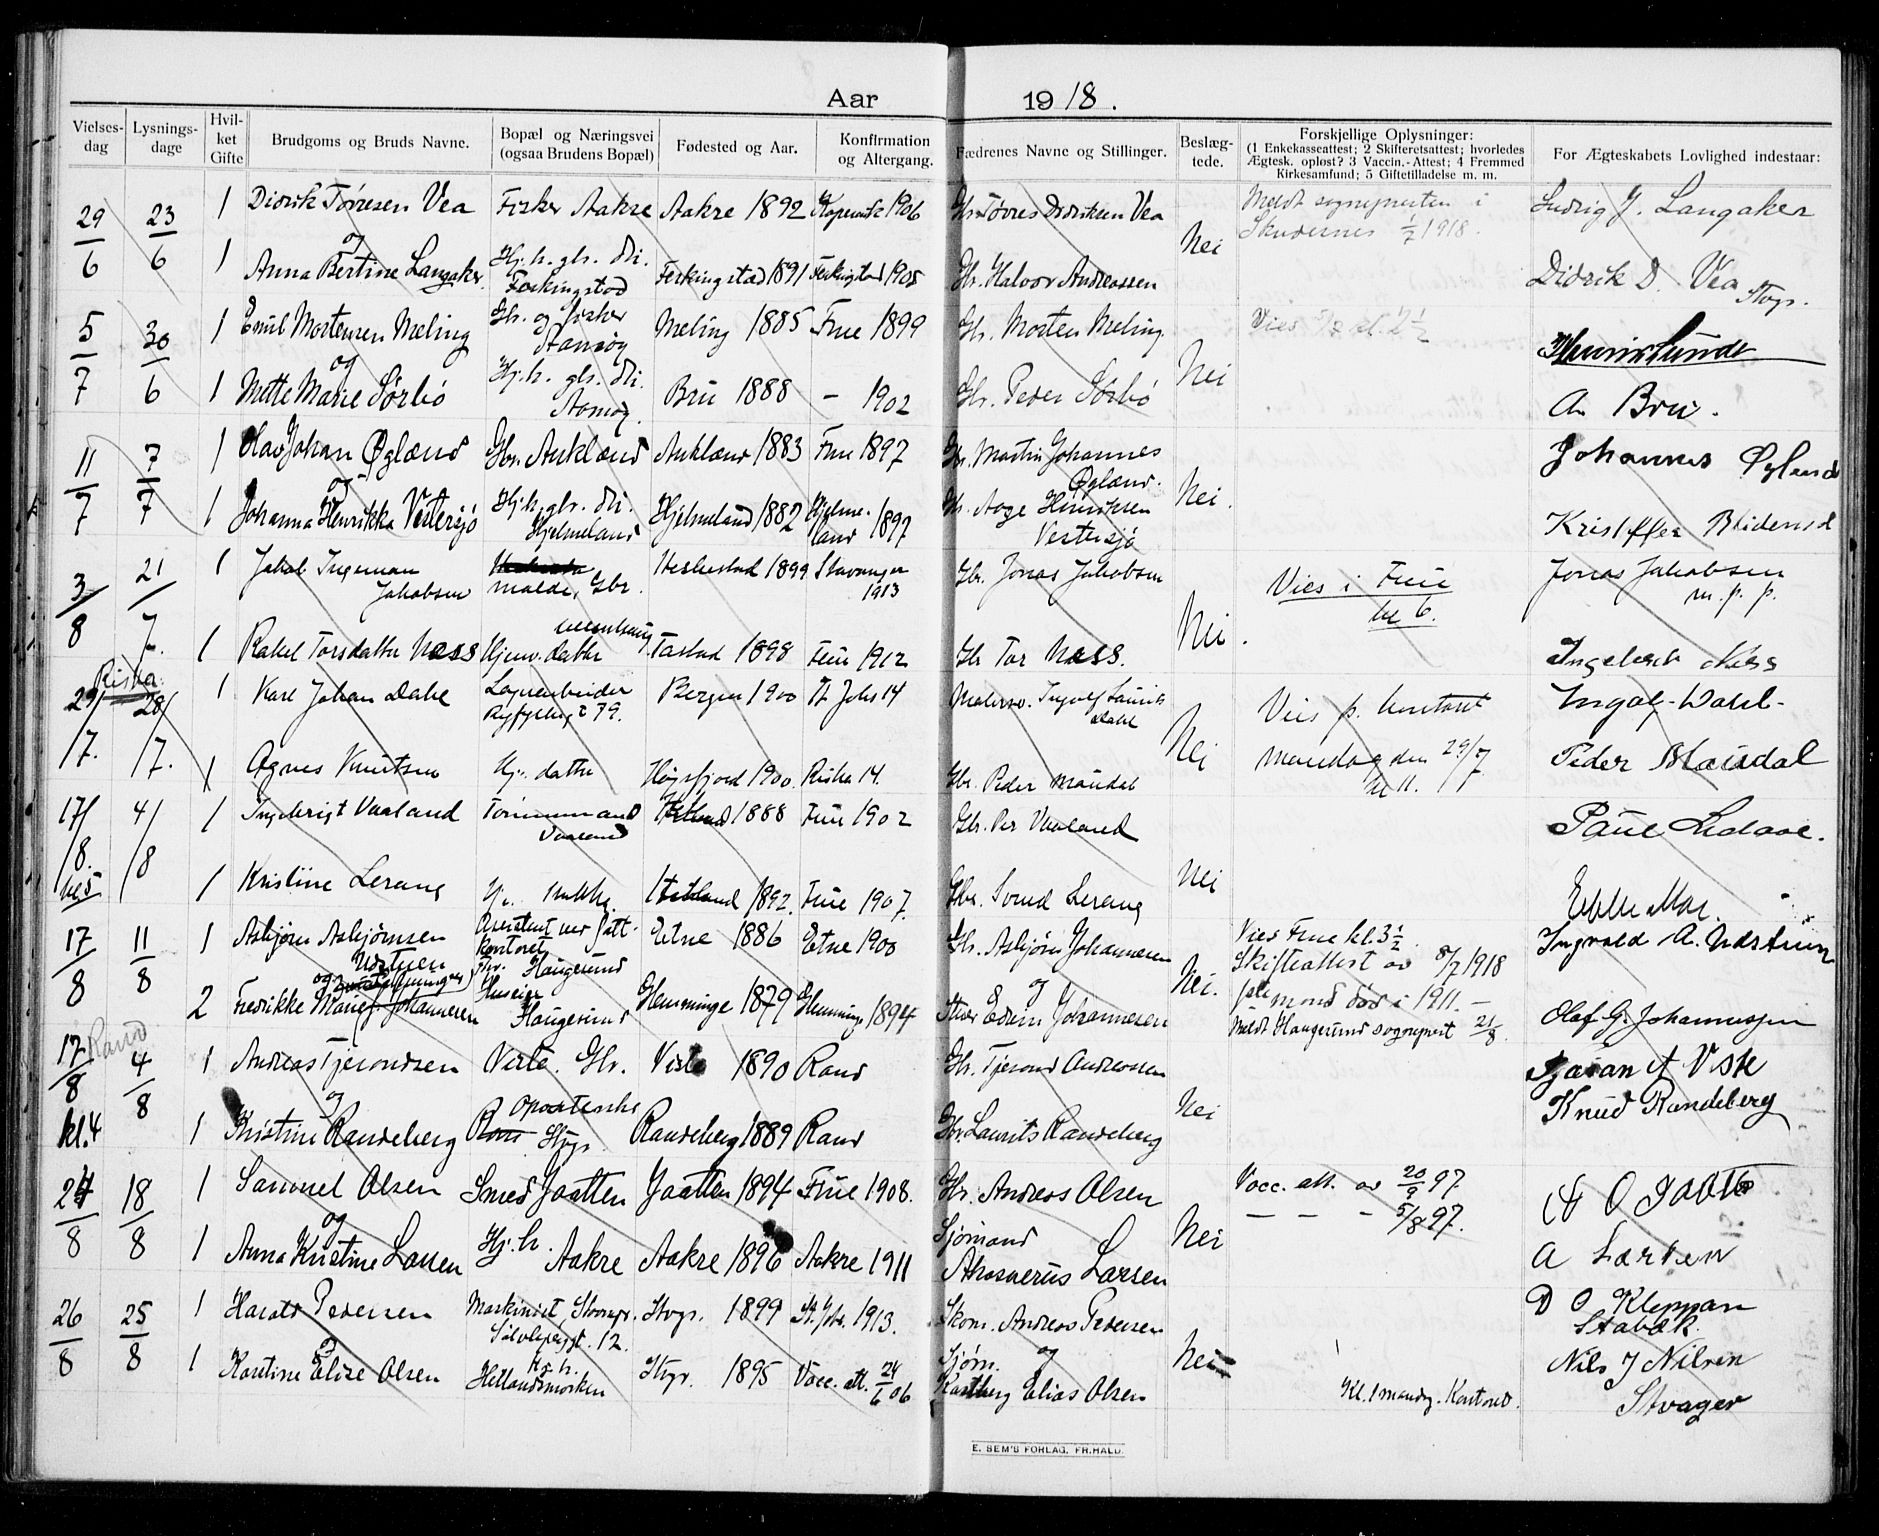 Aar 1918.
Vielsesdag Lysningsdage Hvilket Gifte Brudgoms og Bruds Navne. Bopæl og Næringsvei (ogsaa Brudens Bopæl) Fødested og Aar. Konfirmation og Altergang. Fædrenes Navne og Stillinger. Beslægtede. Forskjellige Oplysninger: (1 Enkekasseattest; 2 Skifteretsattest; hvorledes Ægtesk. opløst? 3 Vaccin.-Attest; 4 Fremmed Kirkesamfund; 5 Giftetilladelse m. m. For Ægteskabets Lovlighed indestaar:
29/6 23/6 1 Didrik Tørresen Vea Fisker Aakre Aakre 1892 1906 Gbr. Tørres Didriksen Vea Meldt sognepresten i Skudernes 1/7 1918. Ludvig J. Langaker
og
1 Anna Bertine Langaker. Hj. h. gbr. dtr. Ferkingstad Ferkingstad 1891 Ferkingstad 1905 Gbr. Halvor Andreassen Nei Didrik D. Vea Stvgr.
5/7 30/6 1 Emil Mortensen Meling Gbr. og fisker Meling 1885 Frue 1899 Gbr. Morten Meling Vies Henrik Sunde
og
1 Mette Marie Sørbø Hj. h. gbr. dtr. Bru 1888 – 1902 Gbr. Peder Sørbø Nei A Bru.
11/7 7/7 1 Olav Johan Øglænd Gbr. Aukland Aukland 1883 Frue 1897 Gbr. Martin Johannes Øglænd. Johannes Øglænd
og
1 Johanna Henrikka Vestersjø Hj. h. gbr. dtr. Hjelmeland Hjelmeland 1882 Hjelmeland 1897 Gbr. Aage Henriksen Vestersjø Nei.
3/8 21/7. 1 Jakob Ingeman Jakobsen Malde, Gbr. Heskestad 1899 Stavanger 1913 Gbr. Jonas Jakobsen Vies i Frue kl 6. Jonas Jakobsen m. p. p.
1 Rakel Torsdatter Næss Hjemv. datter Tastad 1898 Frue 1912 Gbr Tor Næss. Nei. Ingebret Næss
Riska
29/7. 28/7. 1 Karl Johan Dahl Ryfylkeg 79. Bergen 1900 St Johs 14 Malersv. Ingolf Laurits Dahl Vies p. kontoret Ingolf Dahl
1 Agnes Knutsen Hj. datter Høgsfjord 1900. Riska 14. Gbr. Peder Maudal Nei mandag den 29/7 kl 11. Peder Maudal
17/8. kl 5 4/8 1 Ingebrigt Vaaland Tømmermand Vaaland Hetland 1888 Frue 1902 Gbr. Per Vaaland
1 Kristine Lerang Hj. Hetland 1892. Frue 1907. Gbr. Svend Lerang Nei
17/8 11/8 1 Asbjørn Asbjørnsen Udstuen Assistent ved fattigkontoret Haugesund Etne 1886 Etne 1900 Gbr. Asbjørn Johannesen Vies Frue kl. 3½. Ingvald A. Udstuen
og Skifteattest av 8/7 1918
2 Fredrikke Marie f. Johannesen Huseier Haugesund Glemminge 1879 Glemminge 1894 Edvin Johannesen Nei. mand død i 1911. – Meldt Haugesund sogneprest 21/8. Olaf G. Johannesen
Rand
17/8 4/8 1 Andreas Tjerandsen Viste. Gbr. Viste 1890 Rand Gbr. Tjerand Andreassen
og
kl. 4 1 Kristine Randeberg Stvgr. Randeberg 1889 Rand Gbr. Laurits Randeberg Nei Knud Randeberg
24/8 18/8 1 Samuel Olsen Smed Jaatten Jaatten 1894 Frue 1908. Gbr. Andreas Olsen Vacc. att. av 20/9 97 A O Jaatten
og – – – 5/8 97.
1 Anna Kristine Larsen Hj. h. Aakre Aakre 1896 Aakre 1911 Sjømand Ahasverus Larsen Nei A Larsen
26/8 25/8 1 Harald Pedersen Maskinist, Stvgr. 1899 St. Joh. 1913. Skom. Andreas Pedersen D O Kleppan Stabæk.
og
1 Karstine Elise Olsen Hj. h. Hetlandsmarken Stvgr. 1895 Vacc. att. 24/6 06 Sjøm. Karstberg Elias Olsen Nei Kl. 1 mandg. Kontoret. Nils J Nilsen Stvager
E. SEM'S FORLAG. FR.HALD.